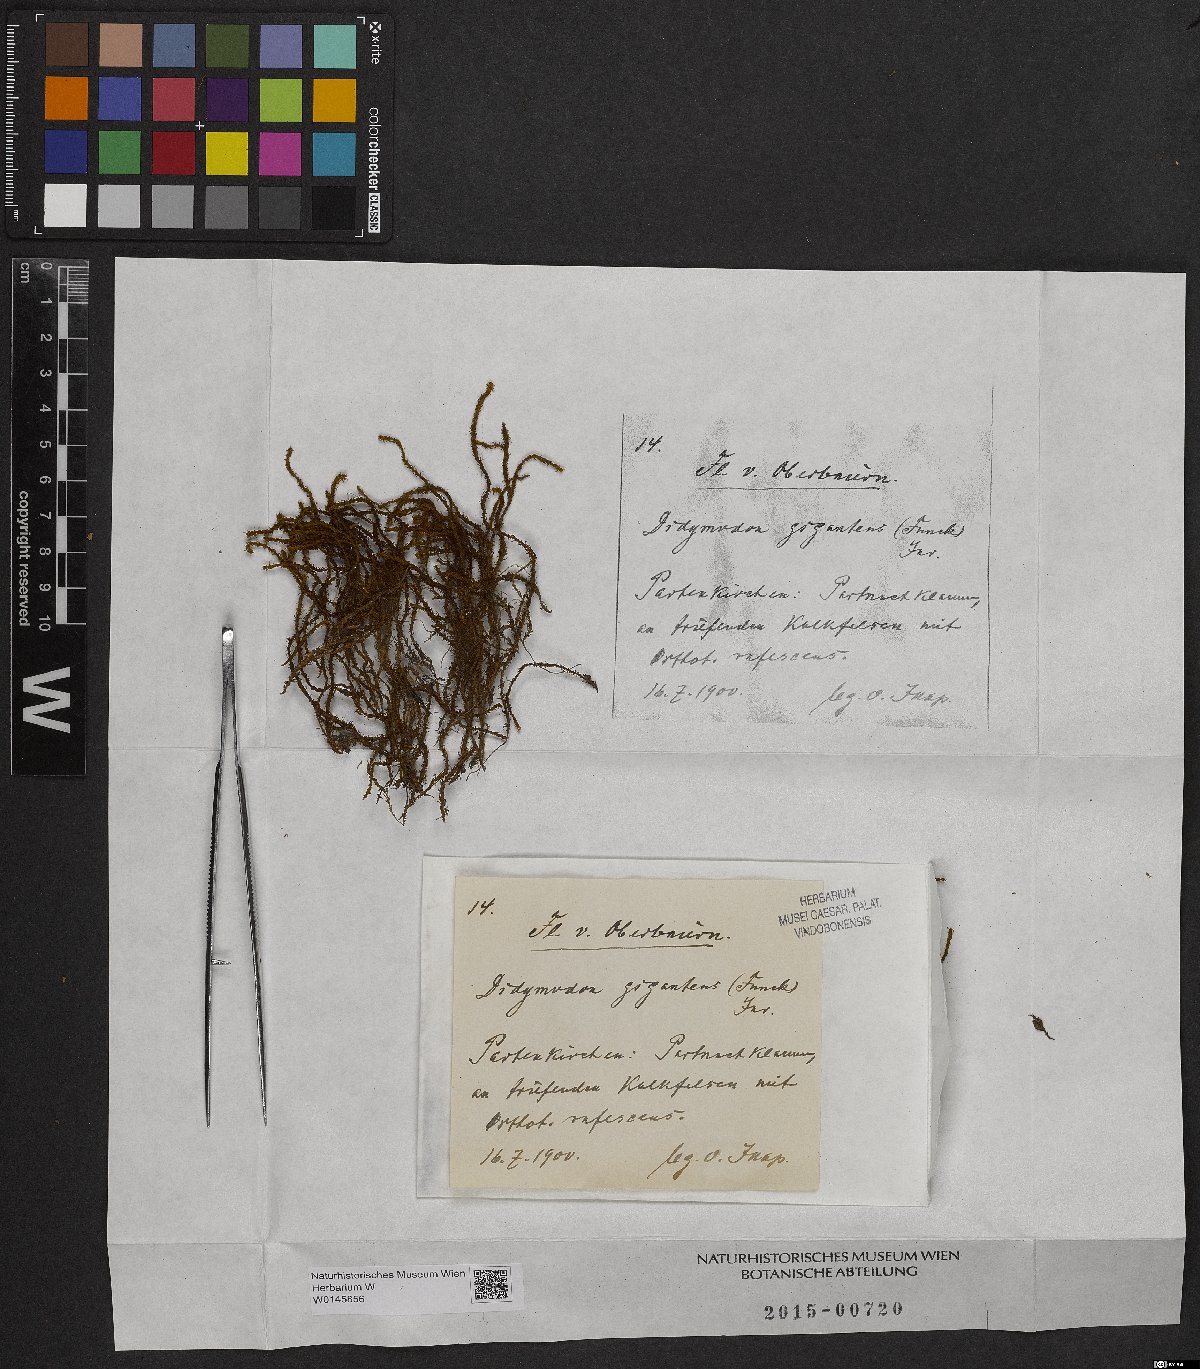 x-rite
colorchecker CLASSIC
mm
0 1 2 3 4 5 6 7 8 9 10
cm
copyright reserved
W
14.
Fl v. Oberbaiern.
Didymodon giganteus (Funck)
Jur.
Partenkirchen: Partnachklamm,
an triefenden Kalkfelsen mit
Orthot. rufescens.
16.7.1900. leg. O. Jaap.
HERBARIUM
MUSEI CAESAR. PALAT.
VINDOBONENSIS
14.
Fl v. Oberbaiern.
Didymodon giganteus (Funck)
Jur.
Partenkirchen: Partnachklamm,
an triefenden Kalkfelsen mit
Orthot. rufescens.
16.7.1900. leg. O. Jaap.
NATURHISTORISCHES MUSEUM WIEN
BOTANISCHE ABTEILUNG
2015-00720
Naturhistorisches Museum Wien
Herbarium W
W0145656